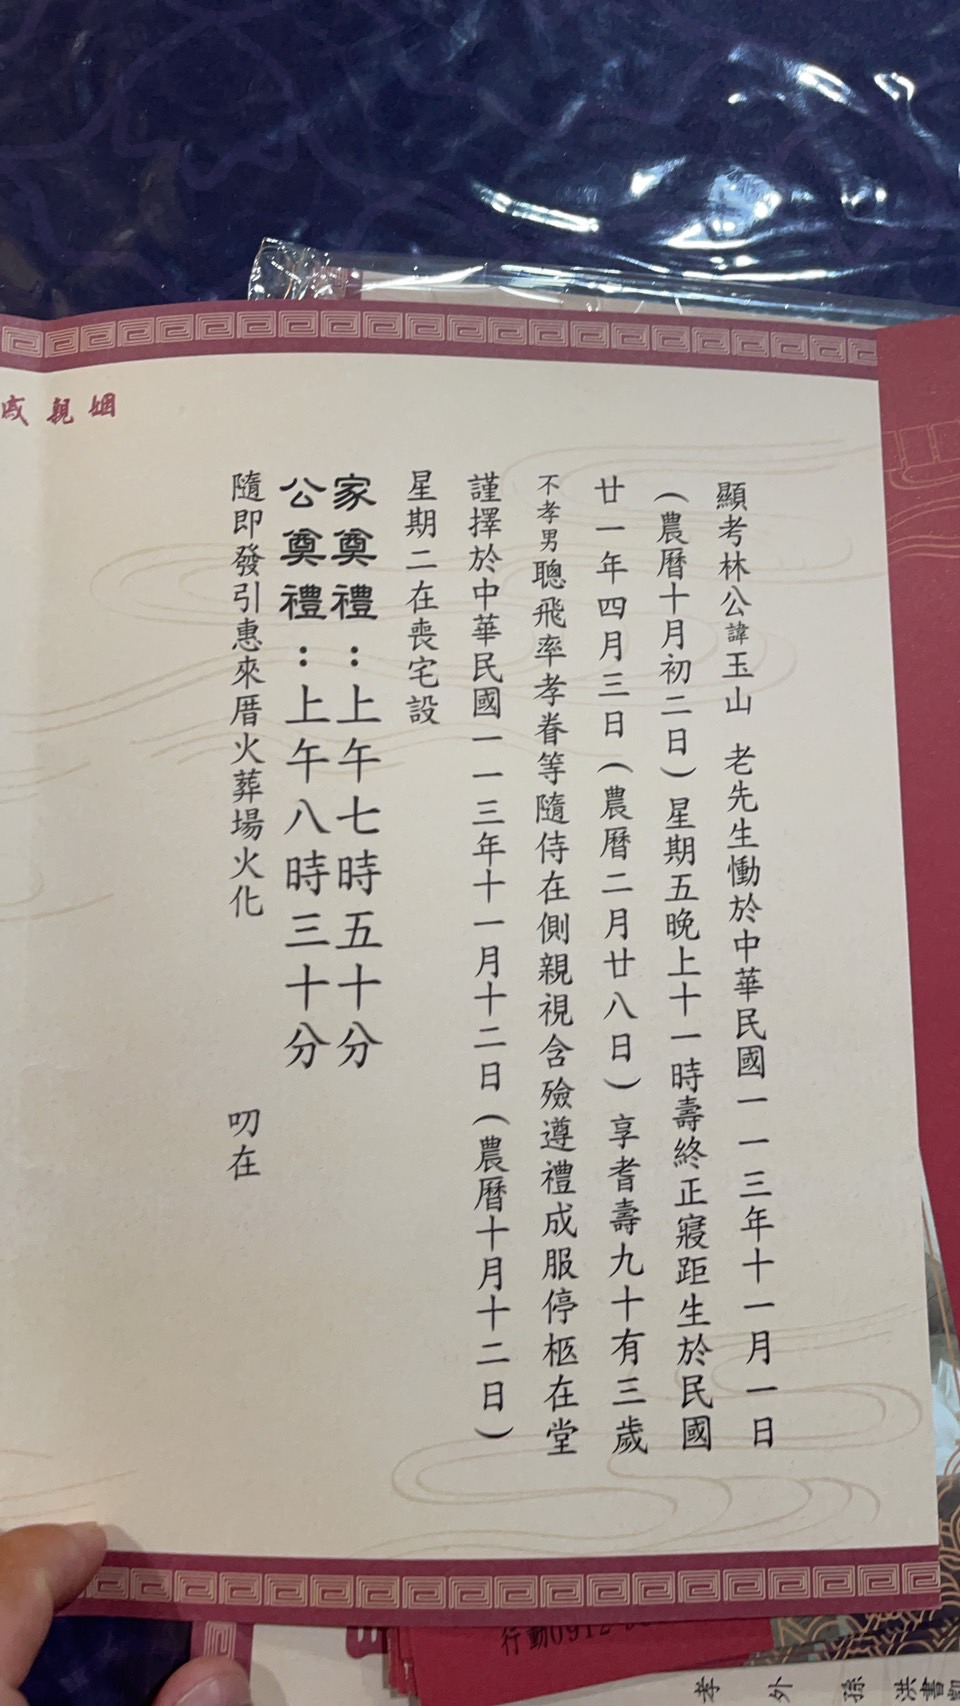 顯考林公諱玉山 老先生慟於中華民國一一三年十一月一日
（農曆十月初二日）星期五晚上十一時壽終正寢距生於民國
廿一年四月三日（農曆二月廿八日）享耆壽九十有三歲
不孝男聰飛率孝眷等隨侍在側親視含殮遵禮成服停柩在堂
謹擇於中華民國一一三年十一月十二日（農曆十月十二日）
星期二在喪宅設
家奠禮：上午七時五十分
公奠禮：上午八時三十分
隨即發引惠來厝火葬場火化 叨在
姻親戚
行動0912
孝外孫洪書